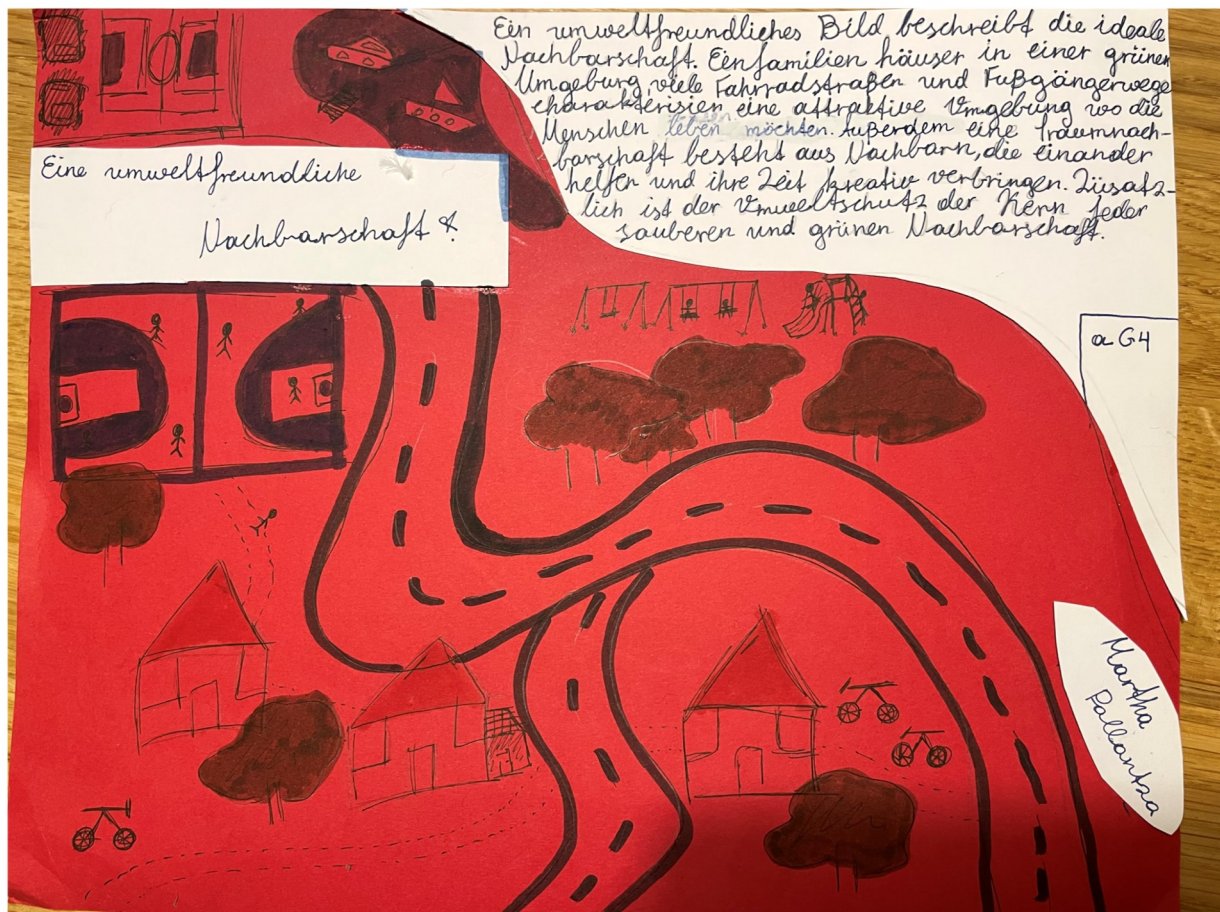 Ein umweltfreundliches Bild beschreibt die ideale
Nachbarschaft. Einfamilien häuser in einer grünen
Umgebung, viele Fahrradstraßen und Fußgängerwege
charakterisien eine attraktive Umgebung wo die
Menschen leben möchten. Außerdem eine Traumnach-
barschaft besteht aus Nachbarn, die einander
helfen und ihre Zeit kreativ verbringen. Zusätz-
lich ist der Umweltschutz der Kern jeder
sauberen und grünen Nachbarschaft.
Eine umweltfreundliche
Nachbarschaft
a G4
Martha
Pallantza